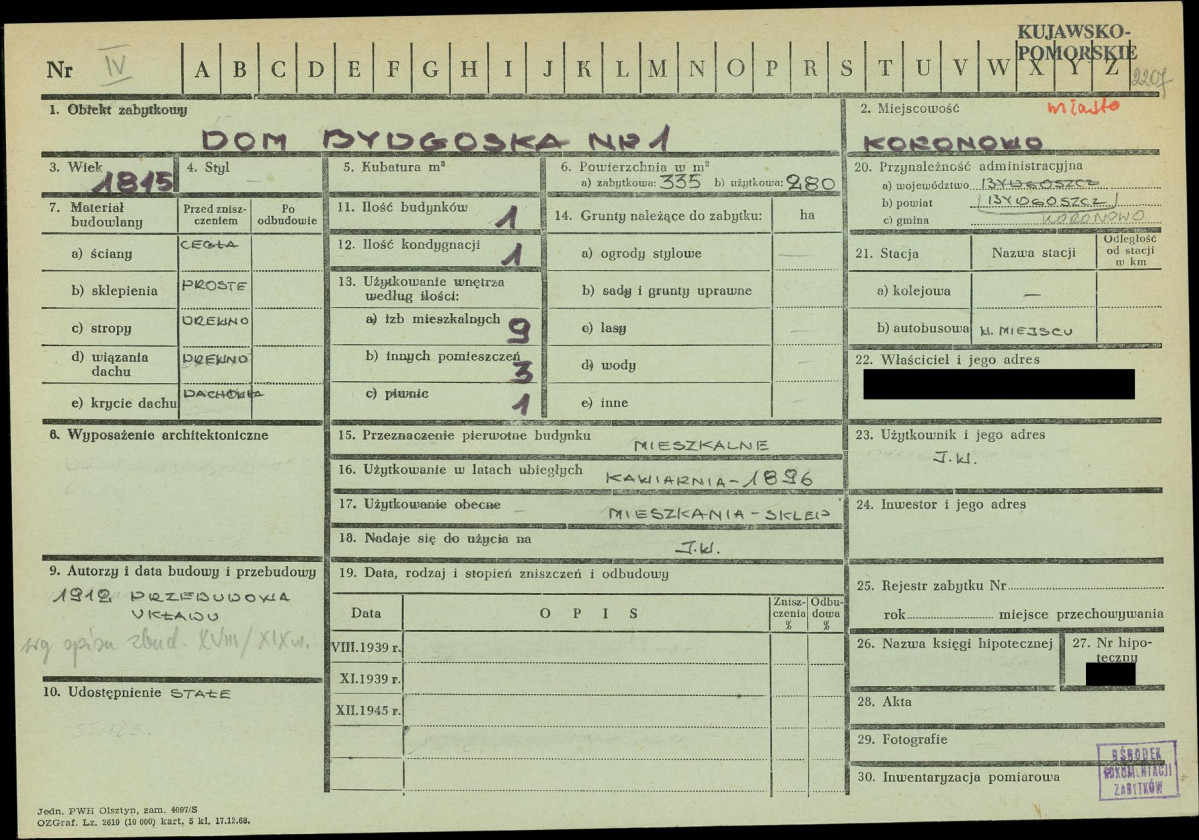 KUJAWSKO-
POMORSKIE
Nr IV A B C D E F G H I J K L M N O P R S T U V W X Y Z
2207
1. Obiekt zabytkowy
DOM BYDGOSKA NR 1
2. Miejscowość miasto
KORONOWO
3. Wiek
1815
4. Styl
5. Kubatura m³
6. Powierzchnia w m²
a) zabytkowa: 335 b) użytkowa: 280
20. Przynależność administracyjna
a) województwo BYDGOSZCZ
b) powiat BYDGOSZCZ
c) gmina KORONOWO
7. Materiał budowlany
Przed zniszczeniem
Po odbudowie
a) ściany CEGŁA
b) sklepienia PROSTE
c) stropy DREWNO
d) wiązania dachu DREWNO
e) krycie dachu DACHÓWKA
11. Ilość budynków 1
12. Ilość kondygnacji 1
13. Użytkowanie wnętrza
według ilości:
a) izb mieszkalnych 9
b) innych pomieszczeń 3
c) piwnic 1
14. Grunty należące do zabytku: ha
a) ogrody stylowe —
b) sady i grunty uprawne —
c) lasy —
d) wody —
e) inne —
21. Stacja
Nazwa stacji
Odległość od stacji w km
a) kolejowa —
b) autobusowa W. MIEJSCU
22. Właściciel i jego adres
8. Wyposażenie architektoniczne
15. Przeznaczenie pierwotne budynku MIESZKALNE
16. Użytkowanie w latach ubiegłych KAWIARNIA - 1896
17. Użytkowanie obecne - MIESZKANIA - SKLEP
18. Nadaje się do użycia na J.W.
23. Użytkownik i jego adres
J.W.
24. Inwestor i jego adres
9. Autorzy i data budowy i przebudowy
1912 PRZEBUDOWA
UKŁADU
wg spisu zbud. XVIII/XIX w.
10. Udostępnienie STAŁE
19. Data, rodzaj i stopień zniszczeń i odbudowy
Data
OPIS
Zniszczenia %
Odbudowa %
VIII.1939 r.
XI.1939 r.
XII.1945 r.
25. Rejestr zabytku Nr
rok miejsce przechowywania
26. Nazwa księgi hipotecznej
27. Nr hipoteczny
28. Akta
29. Fotografie
30. Inwentaryzacja pomiarowa
OŚRODEK
DOKUMENTACJI
ZABYTKÓW
Jedn. PWH Olsztyn, zam. 4097/S
OZGraf. Lz. 2619 (10 000) kart, 5 kl, 17.12.68.